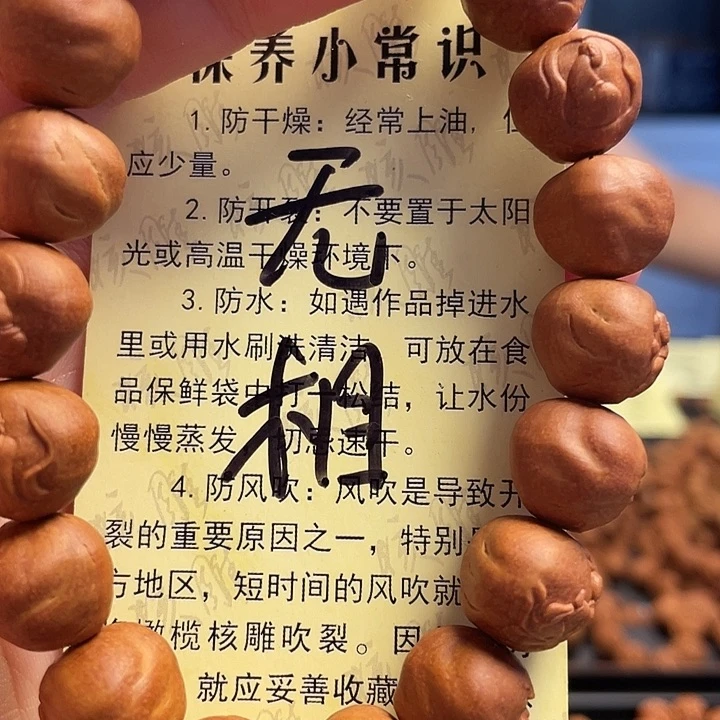 保养小常识
1. 防干燥：经常上油，但
应少量。
2. 防开裂：不要置于太阳
光或高温干燥环境下。
3. 防水：如遇作品掉进水
里或用水刷洗清洁，可放在食
品保鲜袋中打一松结，让水份
慢慢蒸发，切忌速干。
4. 防风吹：风吹是导致开
裂的重要原因之一，特别
方地区，短时间的风吹就
橄榄核雕吹裂。因
就应妥善收藏
无相